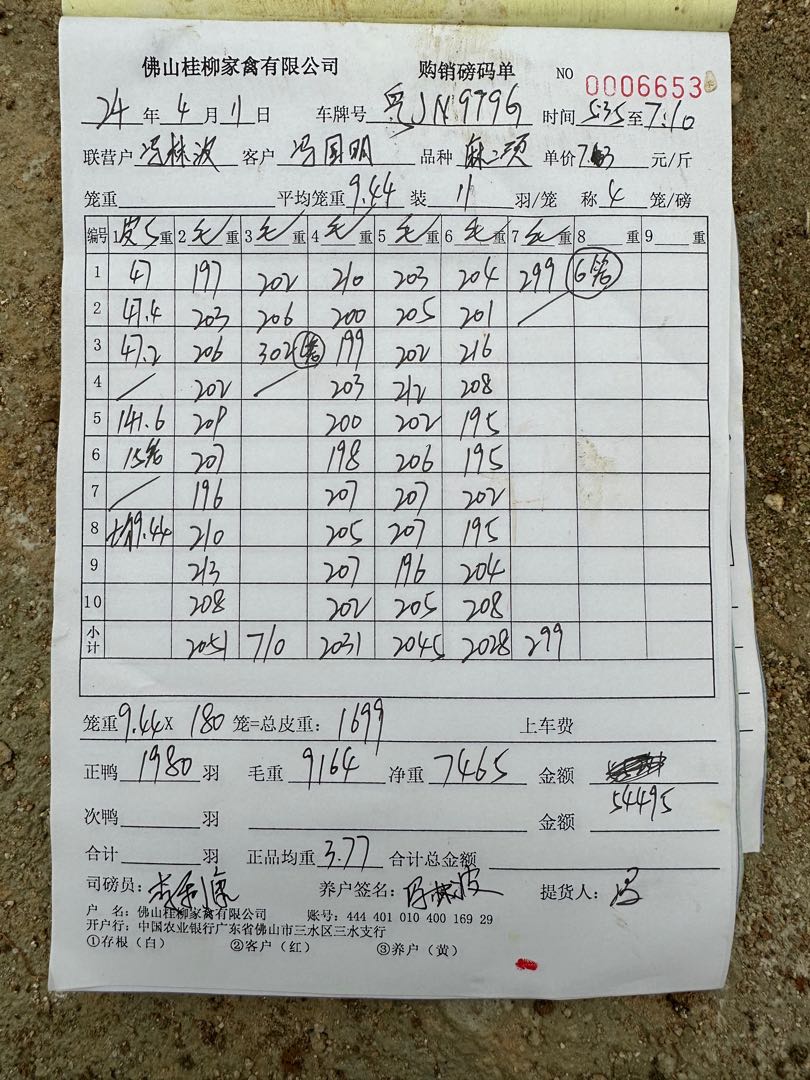 佛山桂柳家禽有限公司 购销磅码单 NO 0006653
24 年 4 月 11 日 车牌号 粤JN9796 时间 5:35 至 7:10
联营户 冯林波 客户 冯国明 品种 麻二项 单价 7. 元/斤
笼重 平均笼重 9.44 装 11 羽/笼 称 4 笼/磅
编号 1 皮 重 2 毛 重 3 毛 重 4 毛 重 5 毛 重 6 毛 重 7 毛 重 8 重 9 重
1 47 197 202 210 203 204 299 6笼
2 47.4 203 206 200 205 201
3 47.2 206 302 6笼 199 202 216
4 202 203 212 208
5 141.6 209 200 202 195
6 15笼 207 198 206 195
7 196 207 207 202
8 9.44 210 205 207 195
9 213 207 196 204
10 208 202 205 208
小计 2051 710 2031 2045 2028 299
笼重 9.44 X 180 笼=总皮重: 1699 上车费
正鸭 1980 羽 毛重 9164 净重 7465 金额
54495
次鸭 羽 金额
合计 羽 正品均重 3.77 合计总金额
司磅员: 养户签名: 冯林波 提货人: 冯
户 名: 佛山桂柳家禽有限公司 账号: 444 401 010 400 169 29
开户行: 中国农业银行广东省佛山市三水区三水支行
①存根(白) ②客户(红) ③养户(黄)